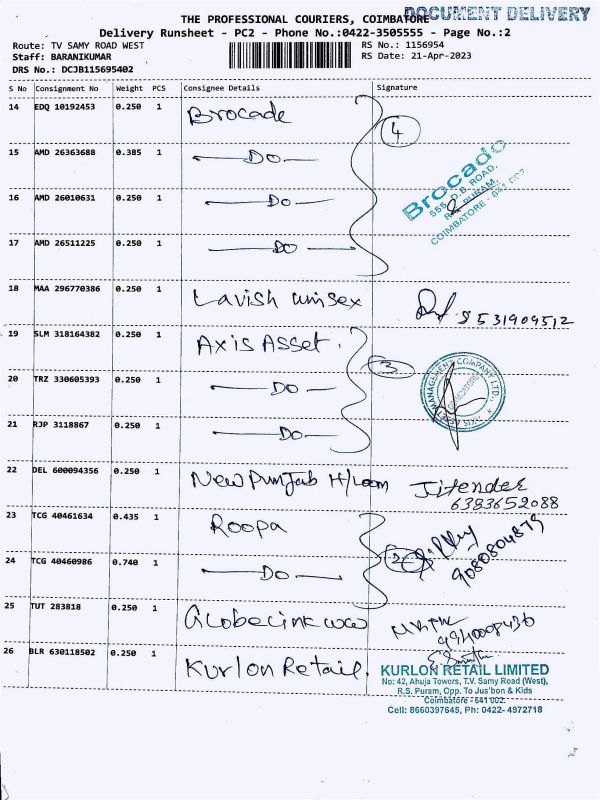 THE PROFESSIONAL COURIERS, COIMBATORE
DOCUMENT DELIVERY
Delivery Runsheet - PC2 - Phone No.:0422-3505555 - Page No.:2
Route: TV SAMY ROAD WEST
RS No.: 1156954
Staff: BARANIKUMAR
RS Date: 21-Apr-2023
DRS No.: DCJB115695402
S No Consignment No Weight PCS Consignee Details Signature
14 EDQ 10192453 0.250 1 Brocade
4
15 AMD 26363688 0.385 1 — DO —
Brocade
555, D.B. ROAD,
R.S. PURAM,
COIMBATORE - 641 002
16 AMD 26010631 0.250 1 — DO —
17 AMD 26511225 0.250 1 — DO —
18 MAA 296770386 0.250 1 Lavish unisex
8531909512
19 SLM 318164382 0.250 1 Axis Asset.
3
AXIS ASSET MANAGEMENT COMPANY LTD.,
COIMBATORE
20 TRZ 330605393 0.250 1 — DO —
21 RJP 3118867 0.250 1 — DO —
22 DEL 600094356 0.250 1 New Punjab H/Loom Jitender
6383652088
23 TCG 40461634 0.435 1 Roopa
2
9080804879
24 TCG 40460986 0.740 1 — DO —
25 TUT 283818 0.250 1 Globelink ww
26 BLR 630118502 0.250 1 Kurlon Retail.
KURLON RETAIL LIMITED
No: 42, Ahuja Towers, T.V. Samy Road (West),
R.S. Puram, Opp. To Jus'bon & Kids
Coimbatore - 641 002.
Cell: 8660397645, Ph: 0422- 4972718